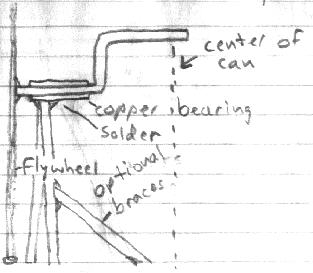 center of
can
copper bearing
solder
flywheel
optional
braces